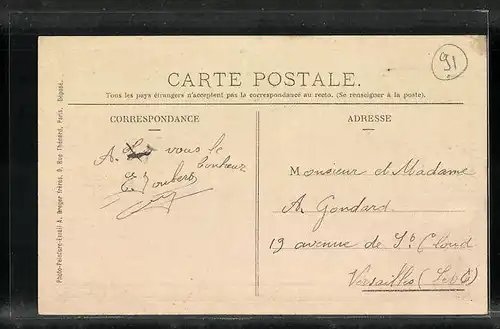 91
CARTE POSTALE.
Tous les pays étrangers n'acceptent pas la correspondance au recto. (Se renseigner à la poste).
CORRESPONDANCE
ADRESSE
A vous le
bonheur
E. Joubert
Monsieur et Madame
A. Gondard
19 avenue de St Cloud
Versailles (S et O)
Photo-Peinture-Email A. Breger frères, 9, Rue Thénard, Paris. Déposé.